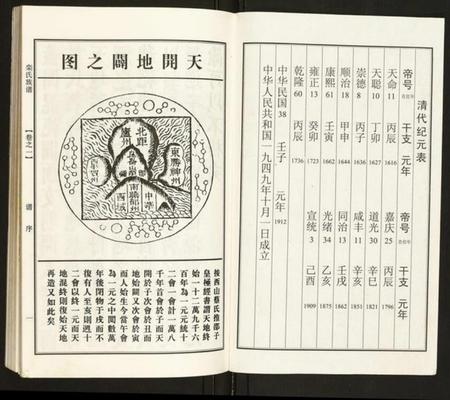 清代纪元表
帝号 在位年 干支 元年 帝号 在位年 干支 元年
天命 11 丙辰 1616 嘉庆 25 丙辰 1796
天聪 10 丁卯 1627 道光 30 辛巳 1821
崇德 8 丙子 1636 咸丰 11 辛亥 1851
顺治 18 甲申 1644 同治 13 壬戌 1862
康熙 61 壬寅 1662 光绪 34 乙亥 1875
雍正 13 癸卯 1723 宣统 3 己酉 1909
乾隆 60 丙辰 1736
中华民国 38 壬子 元年 1912
中华人民共和国一九四九年十月一日成立
天開地闢之图
北距
蘆州
東勝神州
中華
西域
按西山蔡氏推邵子
皇極經書謂天地終
始一十二萬九千六
百年為一元元統十
二會一會計一萬八
千年首會於子而天
開於子次會於丑而
地始闢又次會於寅
而人始生今當午會
為一元之中閏數萬
年後閉物于戌而不
復有人至亥則週十
二會以終一元而天
地混終則復始天地
再造又如此矣
栾氏族谱
【卷之一】
谱序
一